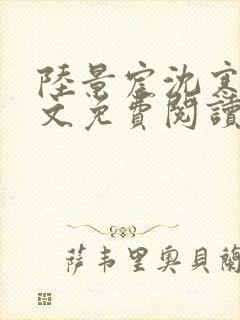 陸景宦沈寒
文免費閱讀
萨韦里奥貝蘭